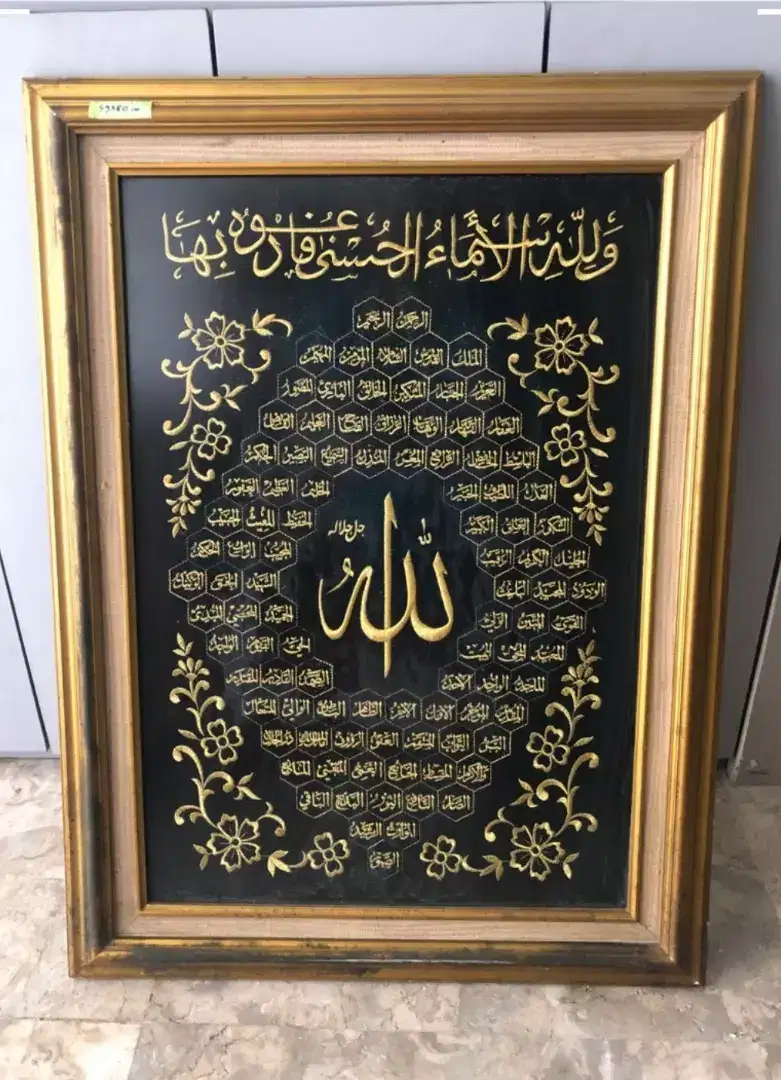 وَلِلَّهِ الأَسْمَاءُ الْحُسْنَى فَادْعُوهُ بِهَا
الرحمن الرحيم
الملك القدوس السلام المؤمن المهيمن
العزيز الجبار المتكبر الخالق البارئ المصور
الغفار القهار الوهاب الرزاق الفتاح العليم القابض
الباسط الخافض الرافع المعز المذل السميع البصير الحكم
العدل اللطيف الخبير الحليم العظيم الغفور
الشكور العلي الكبير الحفيظ المقيت الحسيب
جل جلاله
الله
الجليل الكريم الرقيب المجيب الواسع الحكيم
الودود المجيد الباعث الشهيد الحق الوكيل
القوي المتين الولي الحميد المحصي المبدئ
المعيد المحيي المميت الحي القيوم الواجد
الماجد الواحد الاحد الصمد القادر المقتدر
المقدم المؤخر الاول الآخر الظاهر الباطن الوالي المتعال
البر التواب المنتقم العفو الرؤوف مالك الملك ذو الجلال
والاكرام المقسط الجامع الغني المغني المانع
الضار النافع النور الهادي البديع الباقي
الوارث الرشيد
الصبور